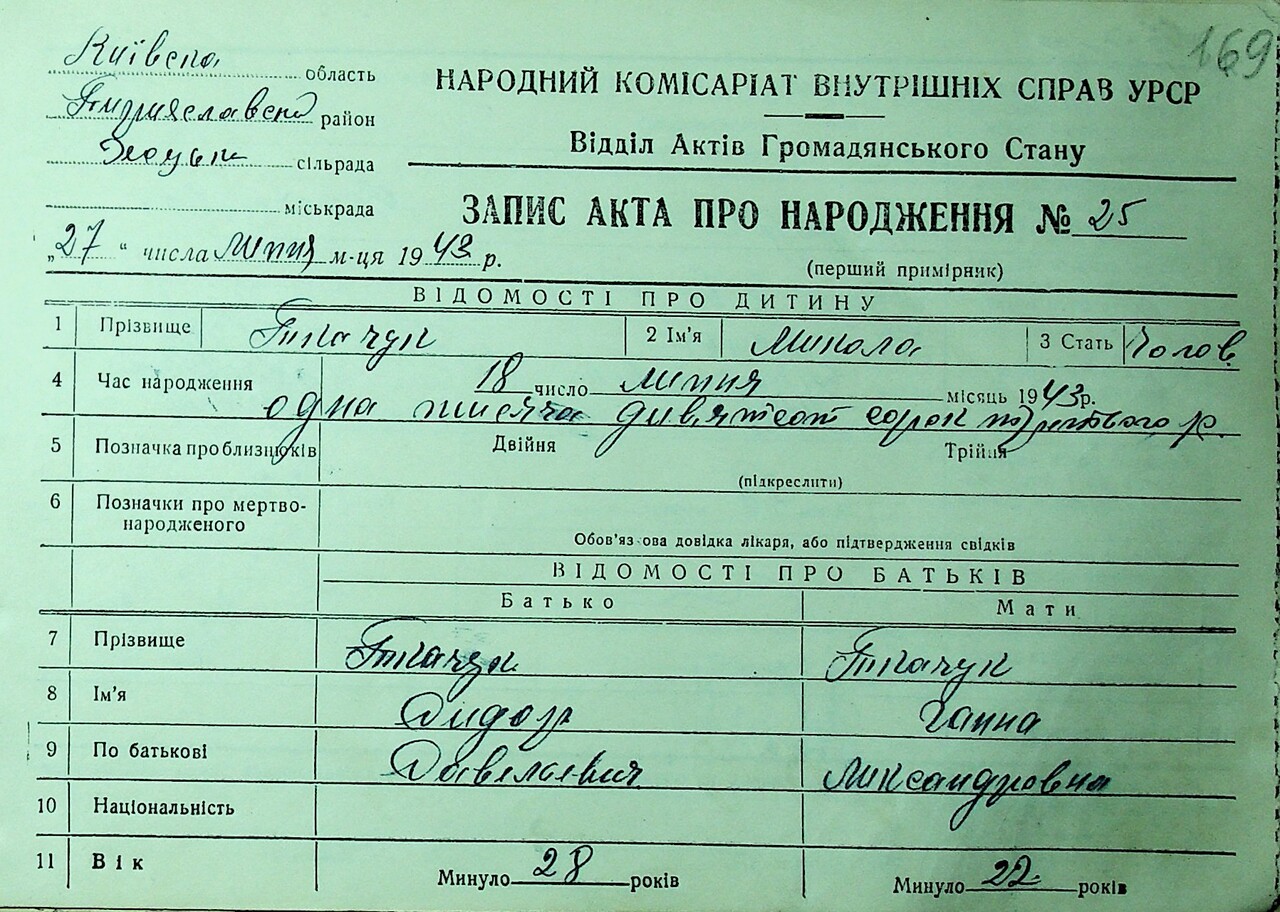 169
Київска область
Переяславский район
Хоцьки сільрада
міськрада
„27“ числа липня м-ця 1943 р.
НАРОДНИЙ КОМІСАРІАТ ВНУТРІШНІХ СПРАВ УРСР
Відділ Актів Громадянського Стану
ЗАПИС АКТА ПРО НАРОДЖЕННЯ № 25
(перший примірник)
ВІДОМОСТІ ПРО ДИТИНУ
1 Прізвище Ткачук 2 Ім'я Микола 3 Стать Чолов.
4 Час народження 18 число липня місяць 1943 р.
одна тисяча девятсот сорок третього р.
5 Позначка про близнюків Двійня Трійня
(підкреслити)
6 Позначки про мертво-
народженого
Обов'язова довідка лікаря, або підтвердження свідків
ВІДОМОСТІ ПРО БАТЬКІВ
Батько Мати
7 Прізвище Ткачук Ткачук
8 Ім'я Сидор Ганна
9 По батькові Савелаевич Александровна
10 Національність
11 Вік Минуло 28 років Минуло 22 років